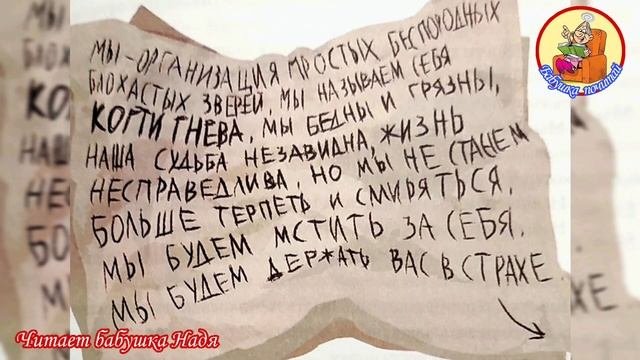 МЫ - ОРГАНИЗАЦИЯ ПРОСТЫХ БЕСПОРОДНЫХ
БЛОХАСТЫХ ЗВЕРЕЙ, МЫ НАЗЫВАЕМ СЕБЯ
КОГТИ ГНЕВА, МЫ БЕДНЫ И ГРЯЗНЫ,
НАША СУДЬБА НЕЗАВИДНА, ЖИЗНЬ
НЕСПРАВЕДЛИВА, НО МЫ НЕ СТАНЕМ
БОЛЬШЕ ТЕРПЕТЬ И СМИРЯТЬСЯ.
МЫ БУДЕМ МСТИТЬ ЗА СЕБЯ.
МЫ БУДЕМ ДЕРЖАТЬ ВАС В СТРАХЕ
Бабушка почитай
Читает бабушка Надя